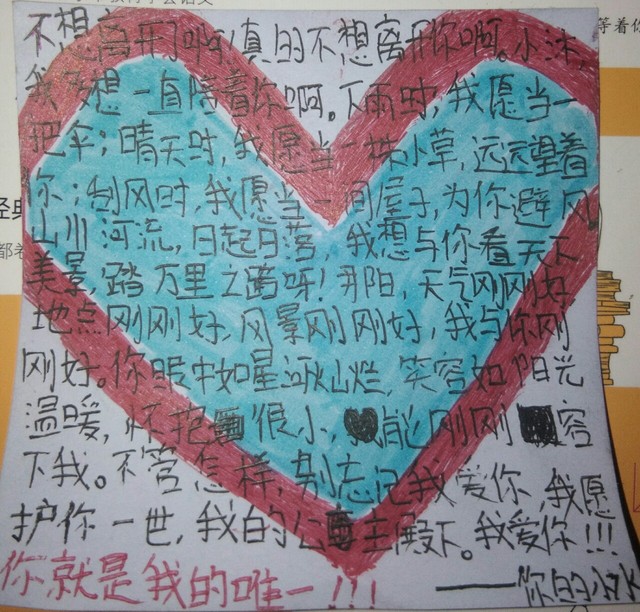 不想离开你啊！真的不想离开你啊。小沐，
我多想一直陪着你啊。下雨时，我愿当一
把伞；晴天时，我愿当一株小草，远远望着
你；刮风时，我愿当一间屋子，为你避风。
山川河流，日起日落，我想与你看天下
美景，踏万里之路呀！那阳，天气刚刚好，
地点刚刚好，风景刚刚好，我与你刚
刚好。你眼中如星河灿烂，笑容如阳光
温暖，怀抱很小，能刚刚容
下我。不管怎样，别忘记我爱你，我愿
护你一世，我的公主殿下。我爱你!!!
你就是我的唯一!!!
——你的小水
等着你
经典